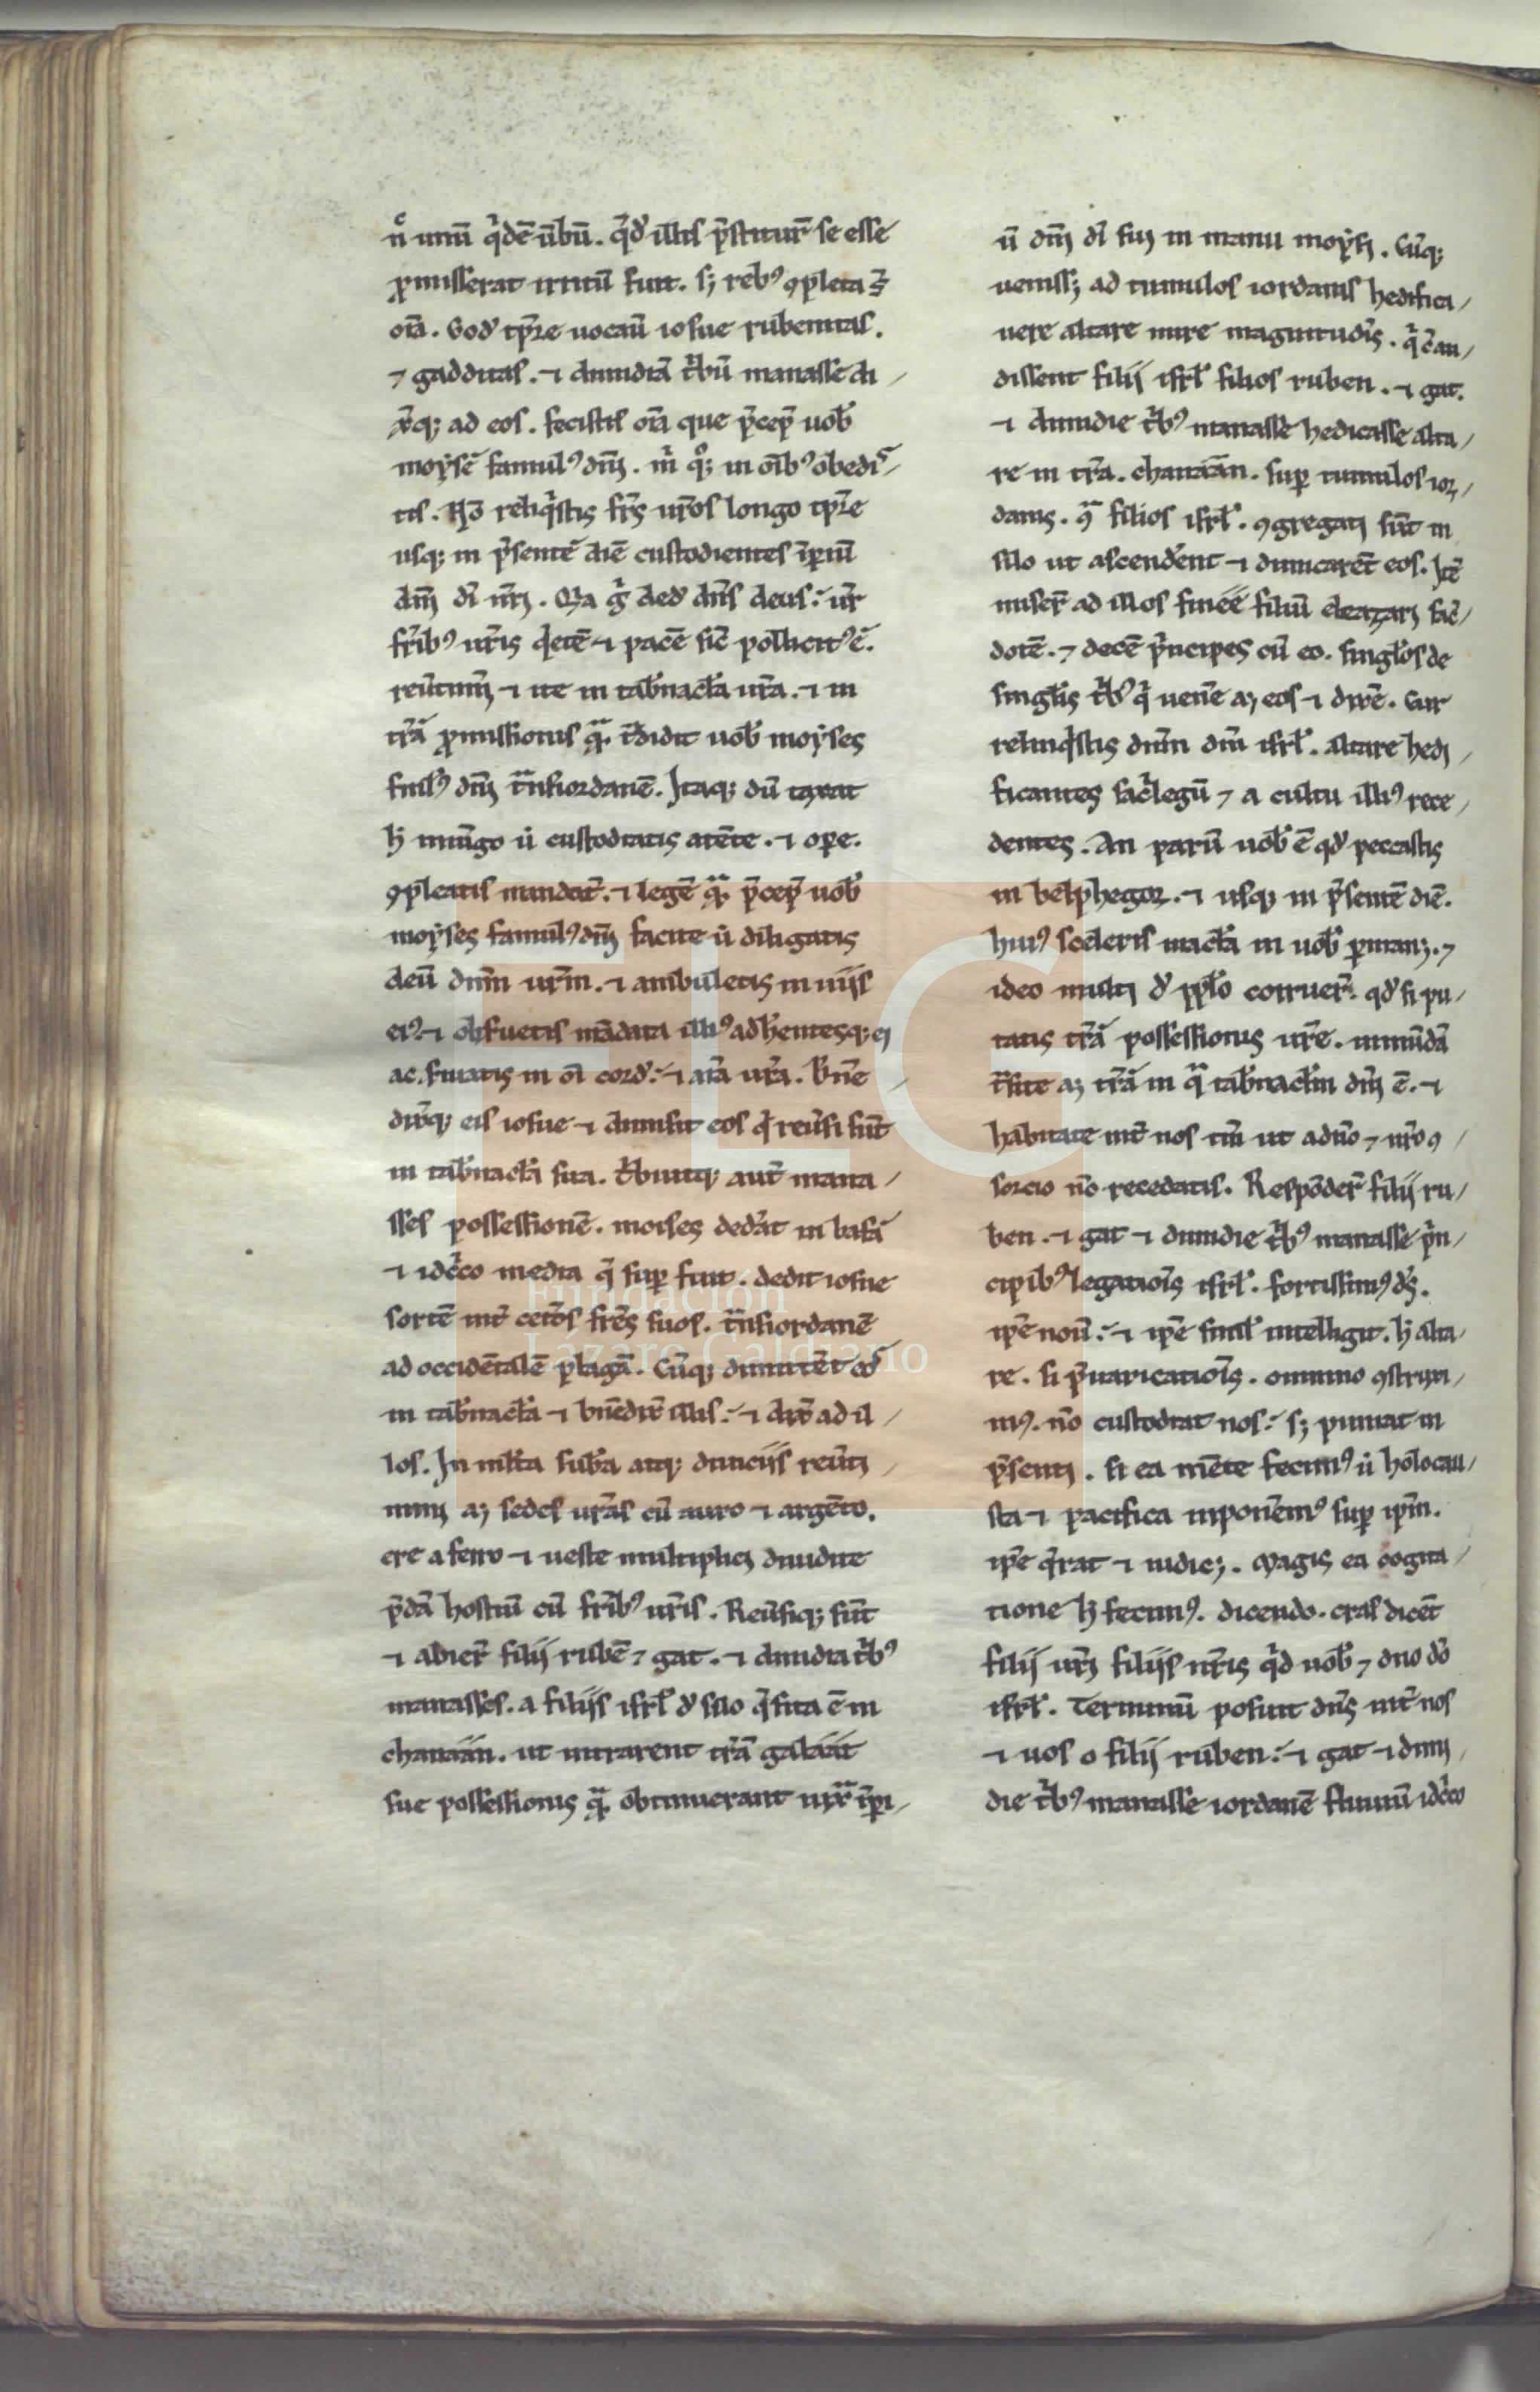 nͨ unū q̇dē ūbū. q̇d illis p̄stiturͣ se esse
ꝓmisserat irritū fuit. sꝫ rebꝰ ꝯpleta sͭ
oīa. Eodͤ tp̄re uocauͭ iosue rubenitas.
⁊ gadditas. ⁊ dimidiā tͥbū manasse di
xͭqꝫ ad eos. fecistis oīa que p̄cepͭ uob̄
moẏsē famulꝰ dn̄j. m̄ qͦqꝫ in oībꝰ obedi
tis. Nō reliqͥstis fr̄s ur̄os longo tp̄re
usqꝫ in p̄sentē diē custodientes īperiū
dn̄j dī nr̄j. Qͥa gͥ dedͭ dn̄s deus ur̄
fr̄ibꝰ ur̄is qͥetē ⁊ pacē sic̄ pollicitꝰ ē.
reūtimj ⁊ ite in tab̄nacl̄a ur̄a. ⁊ in
tr̄ā ꝓmissionis qͣꝫ tͣdidit uob̄ moẏses
fml̄ꝰ dn̄j tͣnsiordanē. Itaqꝫ dū taxat
h̄ iniūgo uͭ custodiatis atēte. ⁊ ope.
ꝯpleatis mandatͣ. ⁊ legē qͣꝫ p̄cepͭ uob̄
moẏses famulꝰ dn̄j facite uͭ diligatis
deū dnm̄ ur̄m. ⁊ ambuletis in uijs
eiꝰ. ⁊ obsuetis mādata illiꝰ adh̄entesqꝫ ej
ac. suiatis in oī cordͤ. ⁊ aīa ur̄a. Bn̄e
dix̄qꝫ eis iosue ⁊ dimisit eos qͥ reūsi sūt
in tab̄nacl̄a sua. tͥbuitqꝫ aut̄ mana
sses possessionē. moises dedāt in basā
⁊ idc̄co media q̄ suꝑ fuit. dedit iosue
sortē int̄ cet̄os fr̄es suos. tͣnsiordanē
ad occidētalē plagā. Cūqꝫ dimitēt eos
in tab̄nacl̄a ⁊ bn̄edix̄ illis. ⁊ dix̄ ad il
los. In ml̄ta sub̄a atqꝫ diuicijs reūtj
minj aꝫ sedes ur̄as cū auro ⁊ argēto.
ere a ferro ⁊ ueste multiplicj diuidite
p̄dā hostiū cū fr̄ibꝰ ur̄is. Reūsiqꝫ sūt
⁊ abier̄ filij rubē ⁊ gat. ⁊ dimidia tͥbꝰ
manasses. a filijs isrl̄ dͤ silo q̄ sita ē in
chanaan. ut intrarent tr̄ā galaat
sue possessionis qͣꝫ obtinuerant iuxͣ īꝑi
ū dn̄j dī suj in manu moẏsi. Cūqꝫ
uenissꝫ ad tumulos iordanis hedifica
uere altare mire magnitudīs. qͥ c̄ au
dissent filij isrl̄ filios ruben. ⁊ gat.
⁊ dimidie tͥbꝰ manasse hedicasse alta
re in tr̄a. chanaan. suꝑ tumulos ior
danis. qͣ filios isrl̄. ꝯgregatj sūt in
silo ut ascendent ⁊ dimicarēt eos. Itē
miser̄ ad illos fineē filiū eleazarj sac̄
dotē. ⁊ decē p̄ncipes cū eo. singl̄os de
singl̄is tͥbꝰ qͥ uenēe aꝫ eos ⁊ dixē. Cur
relinqͥstis dnm̄ dm̄ isrl̄. Altare hedi
ficantes sacͥlegū ⁊ a cultu illiꝰ rece
dentes. An parū uob̄ ē qd̄ peccastis
in belphegor. ⁊ usqꝫ in p̄sentē diē.
huiꝰ sceleris macl̄a in uob̄ ꝑmanꝫ. ⁊
ideo multj dͤ ppl̄o corruer̄. qd̄ si pu
tatis tr̄ā possessionis ur̄e. inmūdā
tͣsite aꝫ tr̄ā in qͣ tab̄nacl̄m dn̄j ē. ⁊
habitate int̄ nos tm̄ ut a dn̄o ⁊ nr̄o ꝯ
sorcio nō recedatis. Respōder̄ filij ru
ben. ⁊ gat ⁊ dimidie tͥbꝰ manasse p̄n
cipibꝰ legatiōis isrl̄. fortissimꝰ dꝰs.
ip̄e nouͭ. ⁊ ip̄e simͥl intelligit. h̄ alta
re. si p̄uaricatiōis. omnino ꝯstruxi
mꝰ. nō custodiat nos. sꝫ puniat in
p̄sentj. si ea mēte fecimꝰ uͭ holocau
sta ⁊ pacifica inponēmꝰ suꝑ ip̄m.
ip̄e q̄rat ⁊ iudicꝫ. Magis ea cogita
tione h̄ fecimꝰ. dicendo. cras dicēt
filij ur̄j filijs nr̄is qͥd uob̄ ⁊ dn̄o dō
isrl̄. Terminū posuit dn̄s int̄ nos
⁊ uos o filij ruben. ⁊ gat ⁊ dimj
die tͥbꝰ manasse iordanē fluuiū idc̄co
Fundación
Lázaro Galdiano
FLG